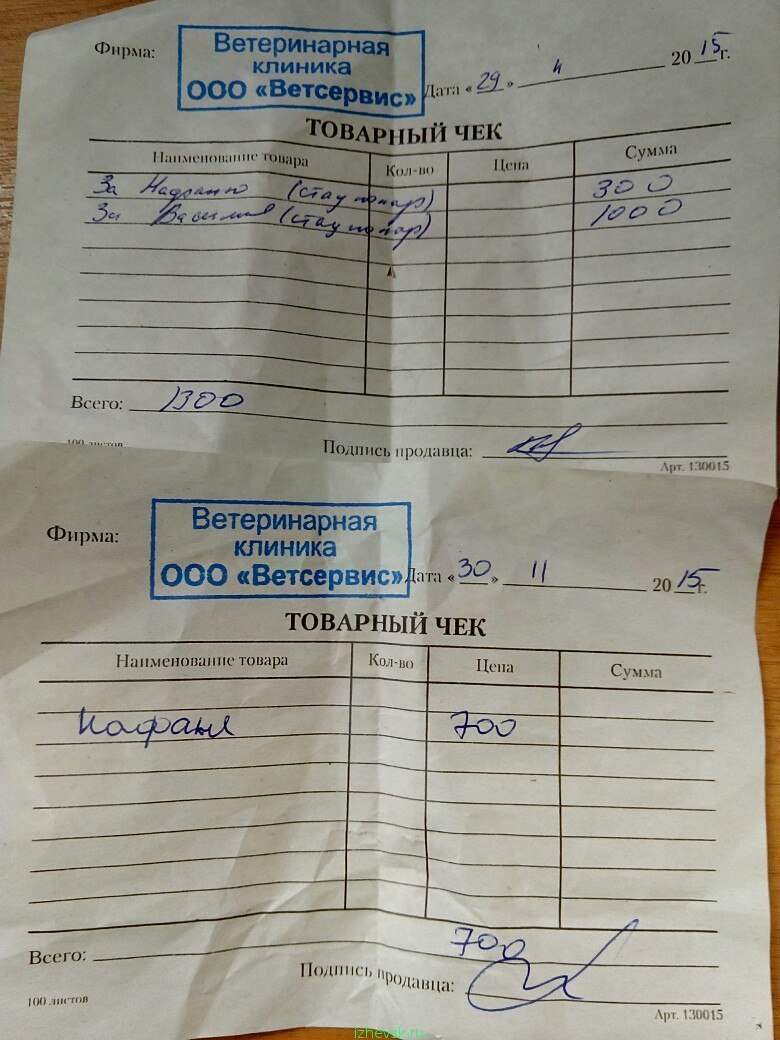 Фирма:
Ветеринарная
клиника
ООО «Ветсервис»
Дата «29» 4 2015г.
ТОВАРНЫЙ ЧЕК
Наименование товара Кол-во Цена Сумма
За Нафаню (стационар) 300
За Василия (стационар) 1000
Всего: 1300
100 листов
Подпись продавца:
Арт. 130015
Фирма:
Ветеринарная
клиника
ООО «Ветсервис»
Дата «30» 11 2015г.
ТОВАРНЫЙ ЧЕК
Наименование товара Кол-во Цена Сумма
Нафаня 700
Всего: 700
Подпись продавца:
100 листов
Арт. 130015
izhevak.ru